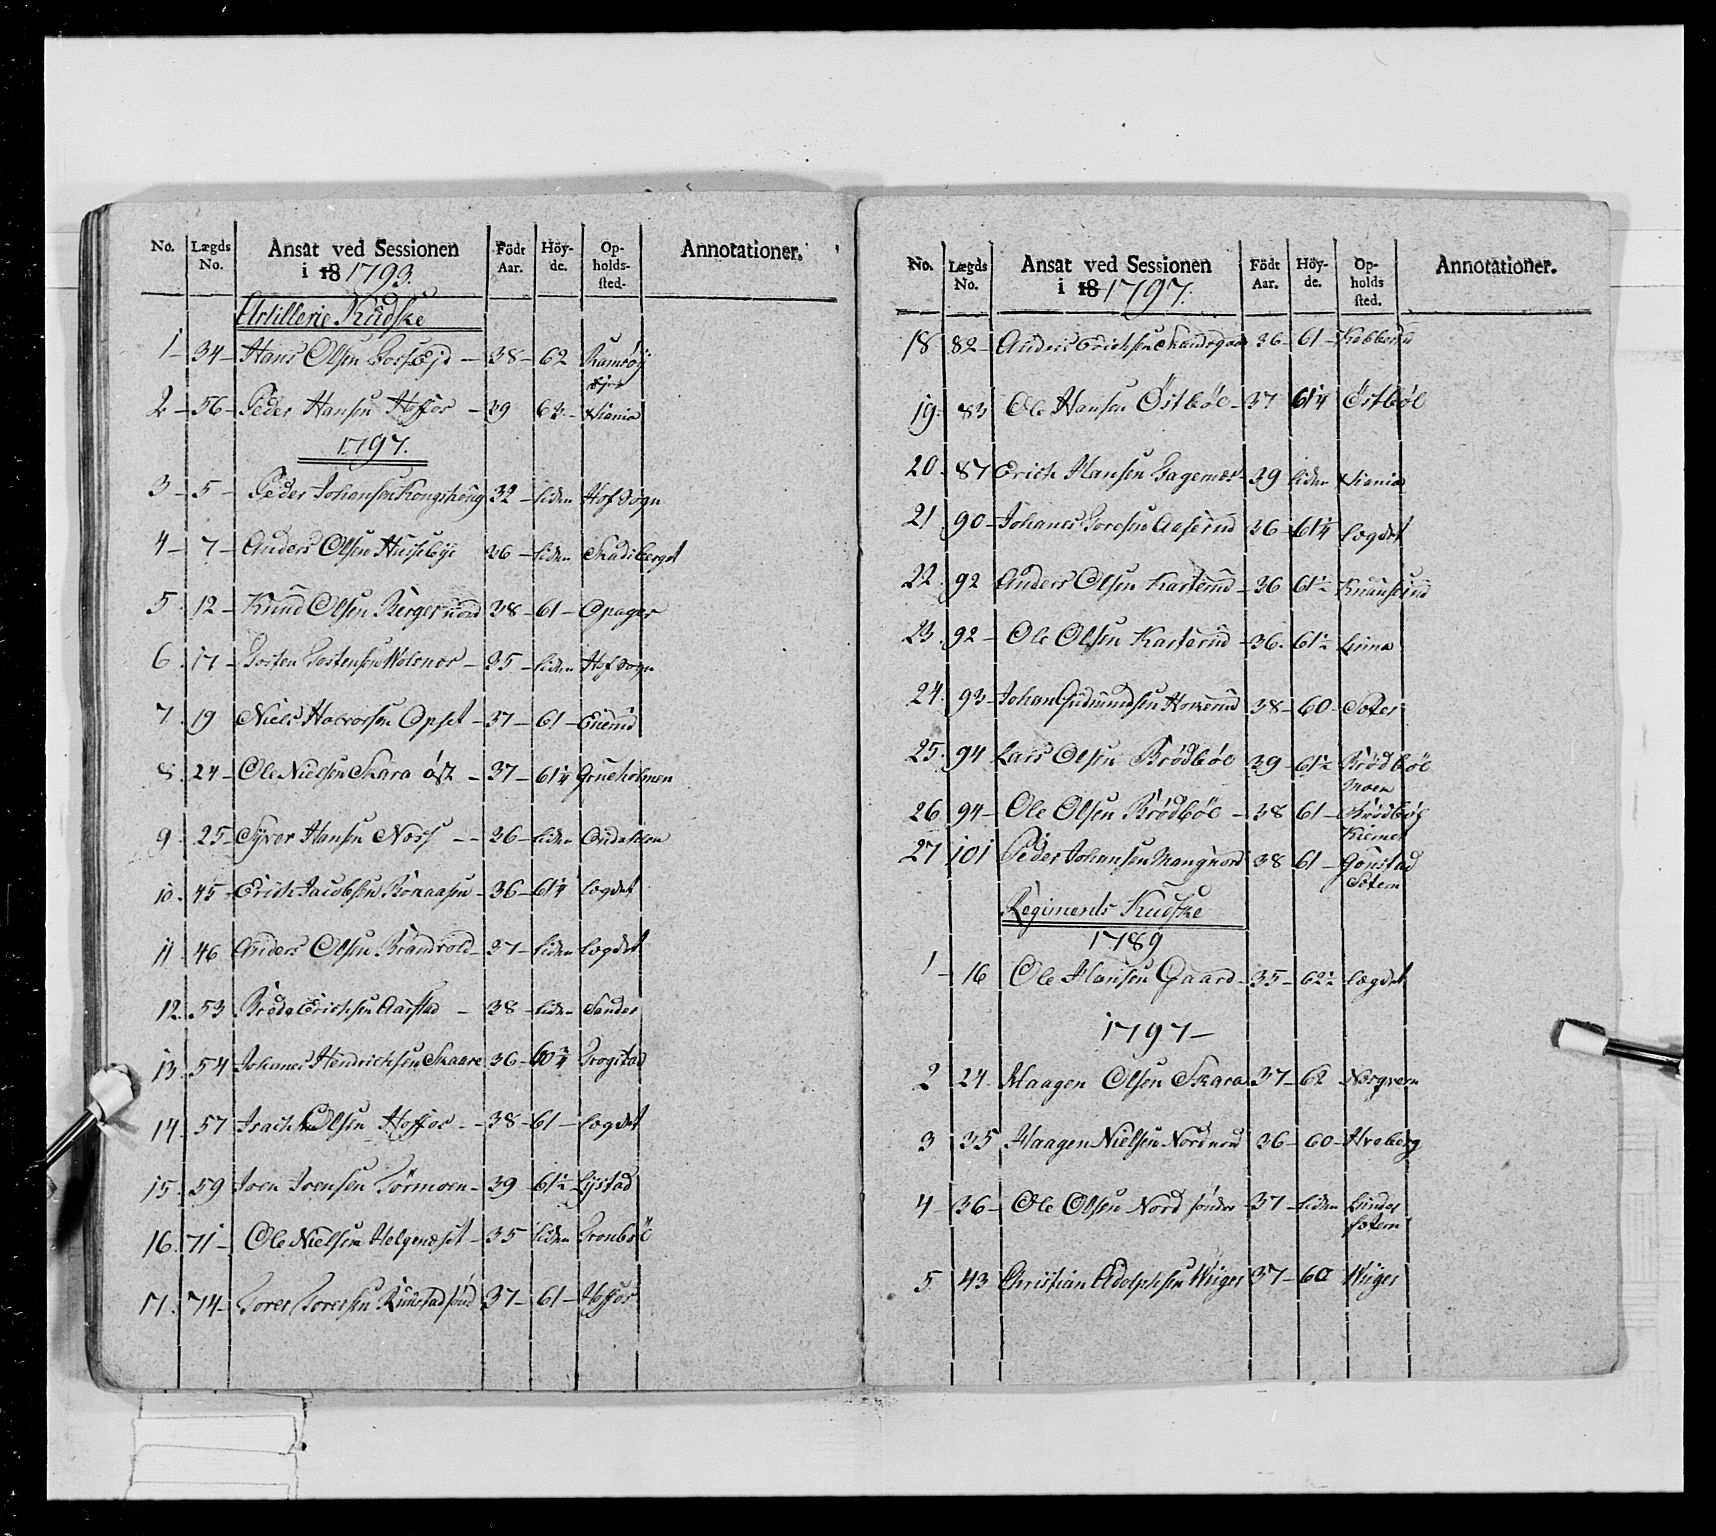 No. Lægds No. Ansat ved Sessionen i 18 1793. Födt Aar. Höy-de. Op-holds-sted. Annotationer.
Artillerie Kudske
1 - 34 - Hans Olsen - 38 - 62
2 - 56 - Peder Hansen Hoffos - 39 62 - Xiania
1797.
3 - 5 - Peder Johansen Kongshoug 32 - liden Hof Sogn
4 - 7 - Anders Olsen Husebye 36 - liden Skadsberget
5 12 - Knud Olsen Berger nord 38 - 61 - Opager
6 17 - Tosten Tostensen - 35 - liden Hof Sogn
7 19 Niels Halvorsen Opset - 37 - 61 - Enerud
8 24 - Ole Nielsen Skara øst - 37 - 61¼ Grueholmen
9 25 - Syver Hansen Næss - 36 - liden
10 45 - Erich Jacobsen - 36 - 61¼ lægdet
11 46 Anders Olsen Brandvold - 37 - liden lægdet
12 53 Erichsen Aarstad - 38 - liden Sander
13 54 Johanes Hendrichsen Skaare 36 - 60¾ Trogstad
14 57 Olsen Hoffos - 38 - 61 - lægdet
15 59 Joen Joensen Tørmoen - 39 61½ Lystad
16 71 - Ole Nielsen Helgenæset - 35 liden Grønbøl
17 74 - Tores Toresen Rustad sønd 37 - 61 - Hoffos
No. Lægds No. Ansat ved Sessionen i 18 1797. Födt Aar. Höy-de. Op-holds sted. Annotationer.
18 82 - Anders Erichsen 36 - 61 - Kobberud
19 83 Ole Hansen Østbøl - 37 61¼ Østbøl
20 87 Erich Hansen Gagernæs 39 liden Xiania
21 90 - Johanes Toresen Aaserud 36 61¼ lægdet
22 92 Anders Olsen Karterud - 36 61½ Knauserud
23 92 - Ole Olsen Karterud - 36 61½ Linna
24 93 - Johan Gudmundsen 38 - 60 - Soter
25 94 Lars Olsen Brødbøl 39 - 61½ Brødbøl
moen
26 94 - Ole Olsen Brødbøl - 38 61 - Brødbøl
27 101 Peder Johansen Mangnord 38 61 - Gonstad
Sotem
Regiments Kudske
1789
1 - 16 Ole Hansen Gaard - 35 - 62½ lægdet
1797 -
2 24 Haagen Olsen Skara 37 - 62 Norgvern
3 35 Haagen Nielsen Nordnord 36 - 60 - Hveberg
4 36 - Ole Olsen Nord søndre 37 - liden Linder
sotem
5 43 Christian Adolphsen Wiiger 37 - 60 Wiiger